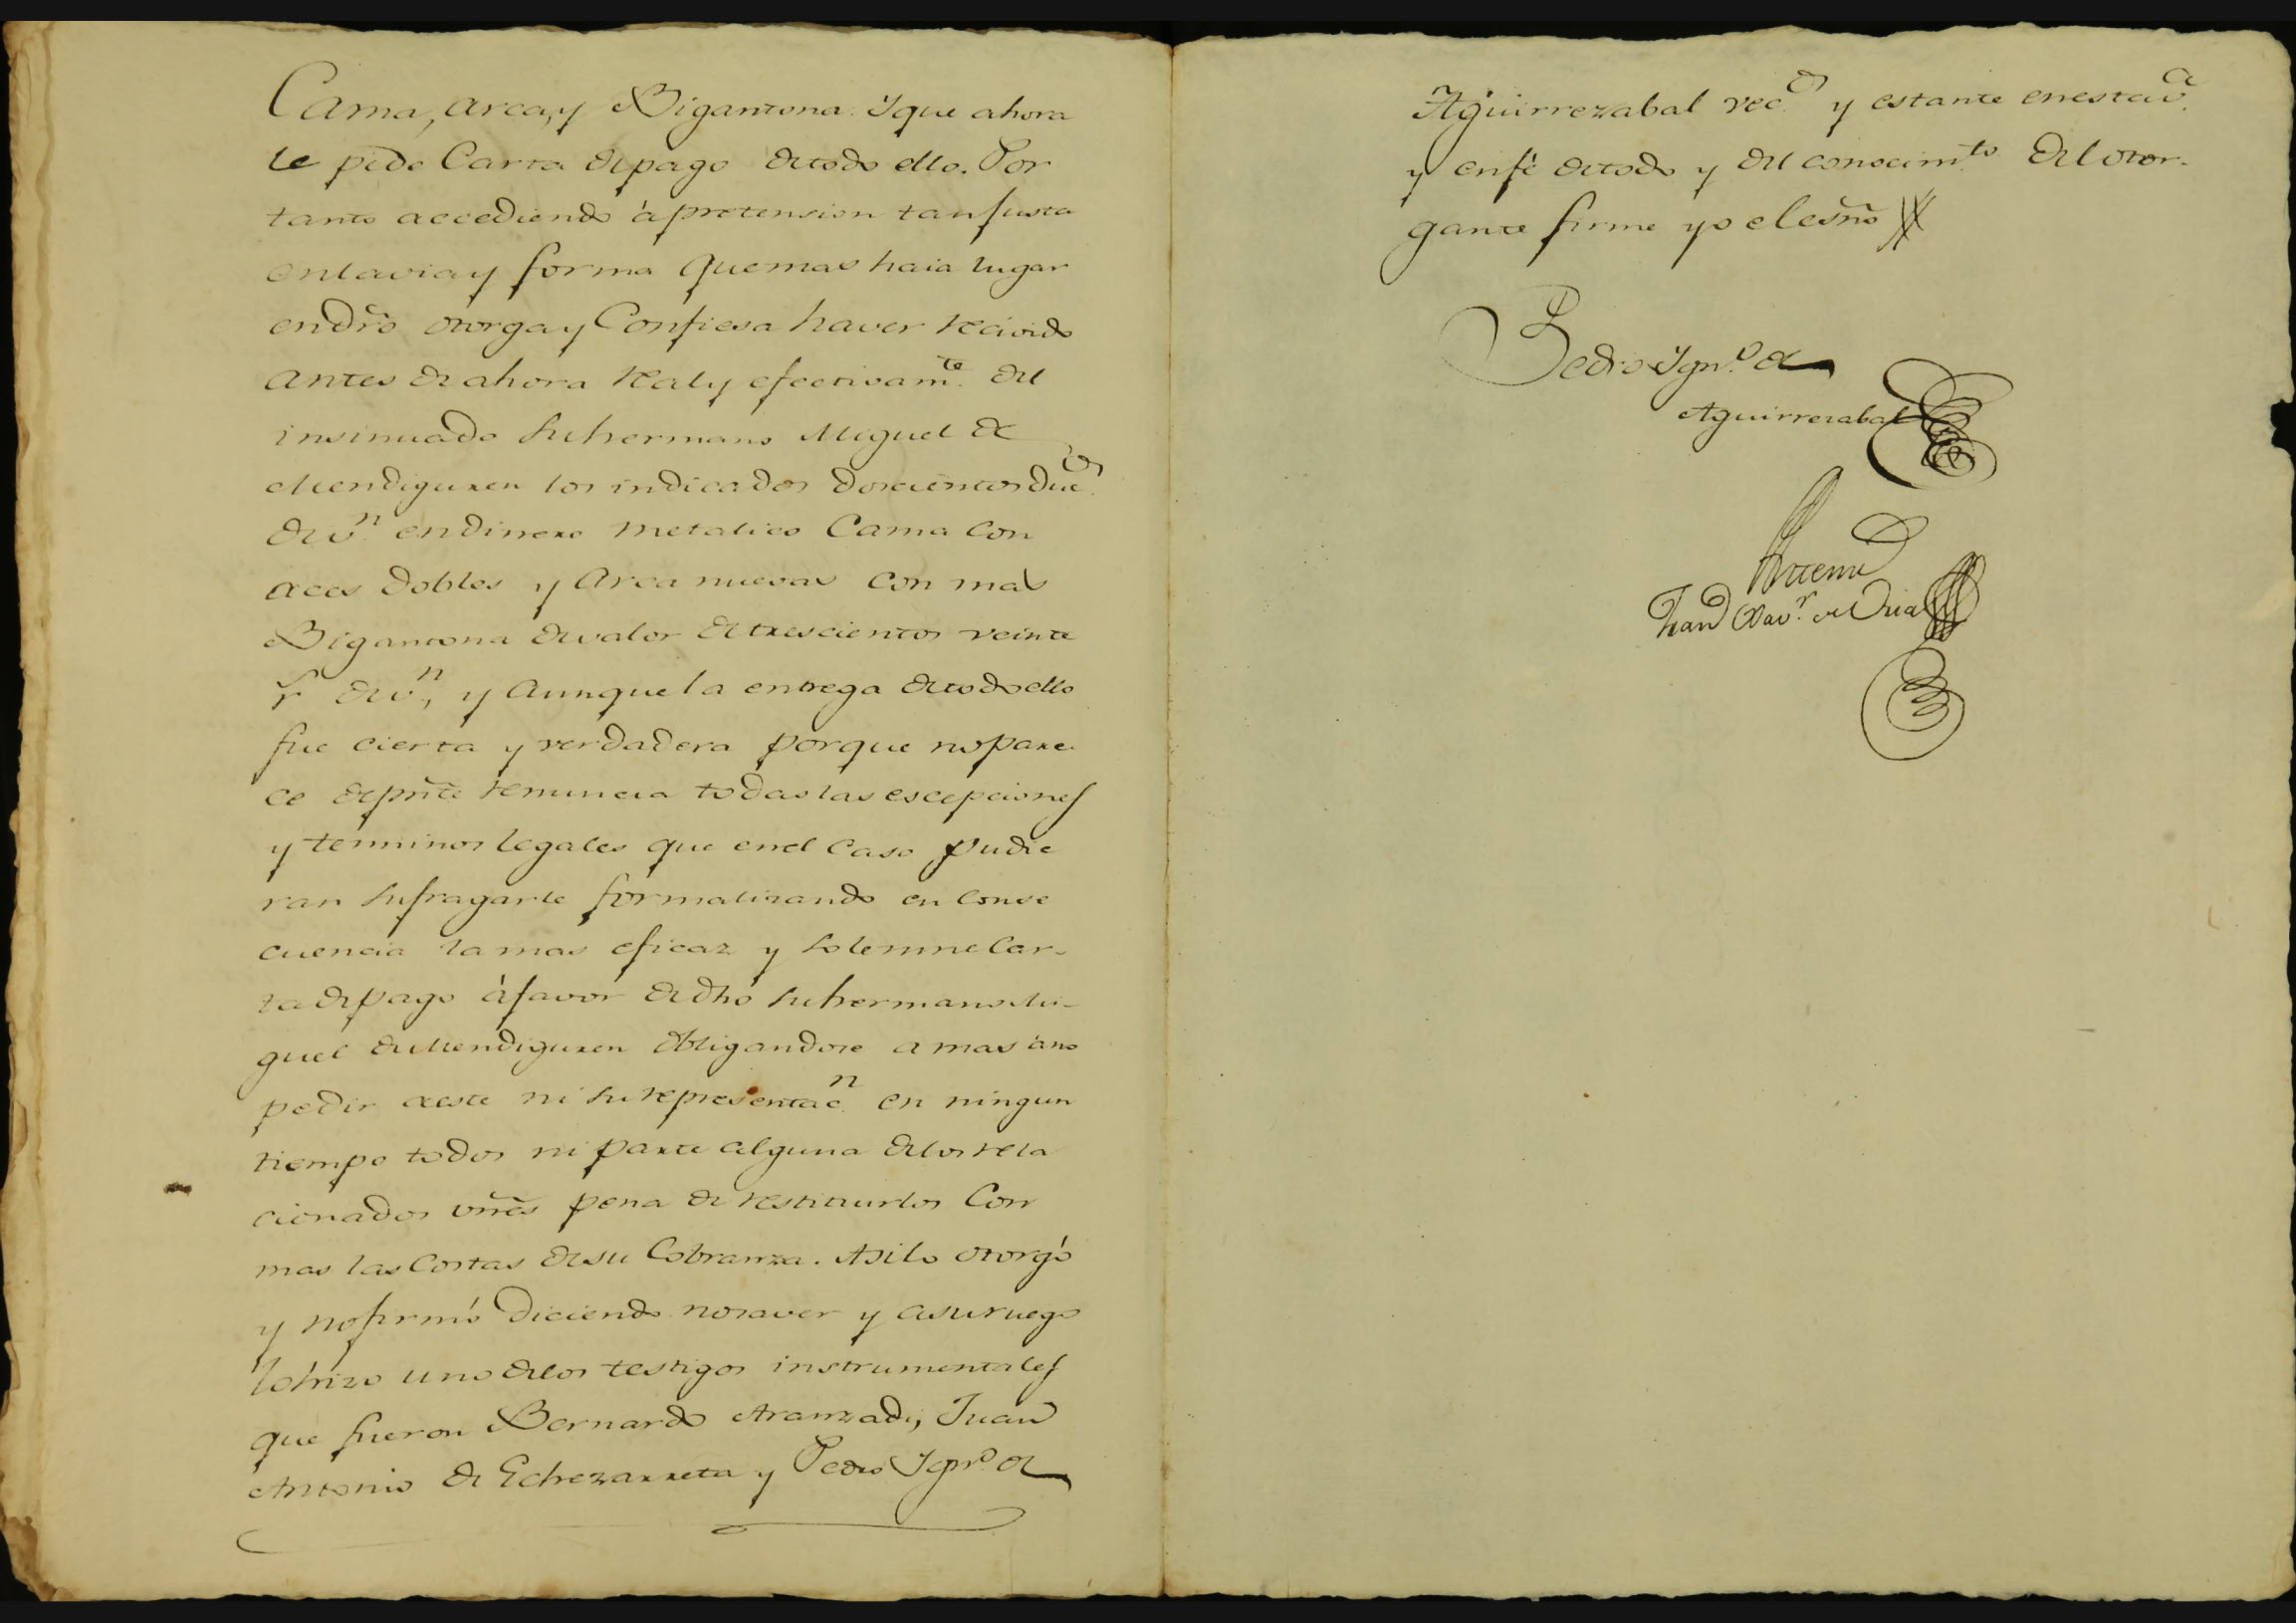 Cama, arca, y Bigantona. Y que ahora
le pide Carta de pago de todo ello. Por
tanto accediendo á pretension tan justa
en la via y forma que mas haia lugar
en dr̃o otorga y Confiesa haver recivido
antes de ahora real y efectivam.te del
insinuado su hermano Miguel de
Mendiguren los indicados doscientos duc.s
de v.n en dinero metalico Cama con
aces dobles y Arca nuevas con mas
Bigantona de valor de trescientos veinte
r.s de v.n, y aunque la entrega de todo ello
fue cierta y verdadera porque no pare-
ce de pñte renuncia todas las escepciones
y terminos legales que en el Caso pudie
ran sufragarle formalizando en conse
cuencia la mas eficaz y solemne Car-
ta de pago á favor de dho su hermano Mi-
guel de Mendiguren obligandose a mas á no
pedir a este ni su representac.n en ningun
tiempo todos ni parte alguna de los rela
cionados vñes pena de restituirlos Con
mas las Costas de su Cobranza. Asi lo otorgó
y no firmó diciendo no saver y a su ruego
lo hizo uno de los testigos instrumentales
que fueron Bernardo Aranzadi, Juan
Antonio de Echezarreta y Pedro Ygn.o de
Aguirrezabal vec.s y estante en esta v.a
y en fé de todo y del conocim.to del otor-
gante firme yo el esño
Pedro Ygn.o de
Aguirrezabal
Ante mi
Juan Xav.r de